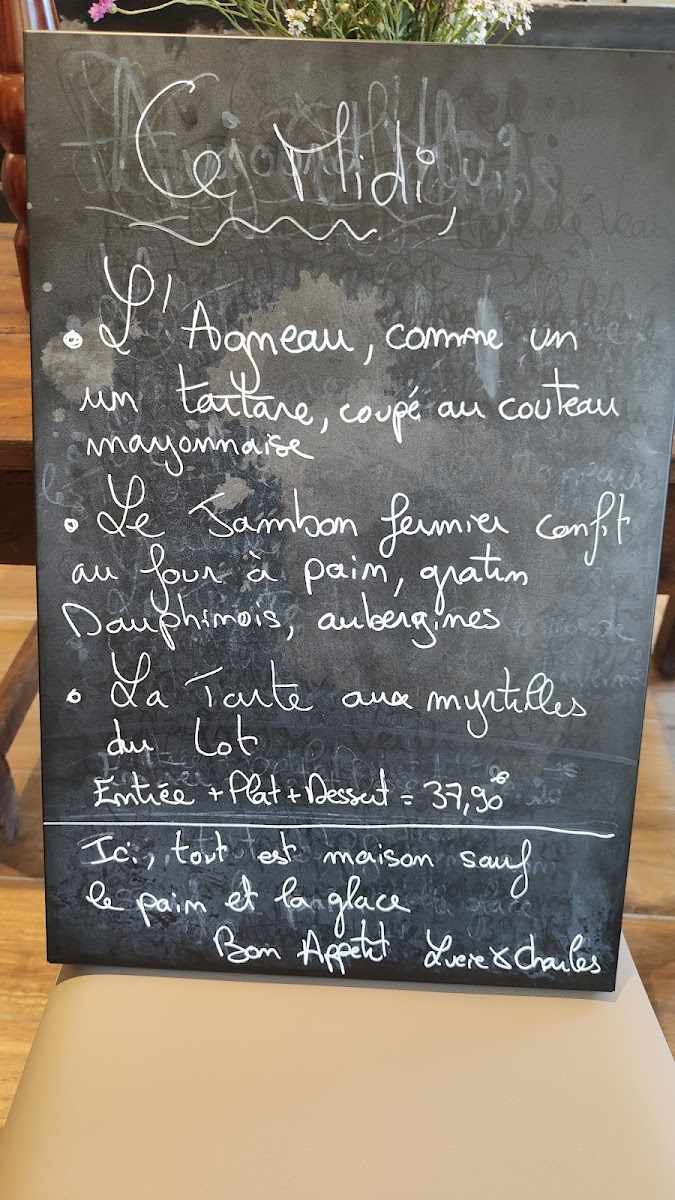 Ce Midi,
• L'Agneau, comme un
un tartare, coupé au couteau
mayonnaise
• Le Jambon fermier confit
au four à pain, gratin
Dauphinois, aubergines
• La Tarte aux myrtilles
du Lot
Entrée + Plat + Dessert = 37,90€
Ici, tout est maison sauf
le pain et la glace
Bon Appetit Lucie & Charles